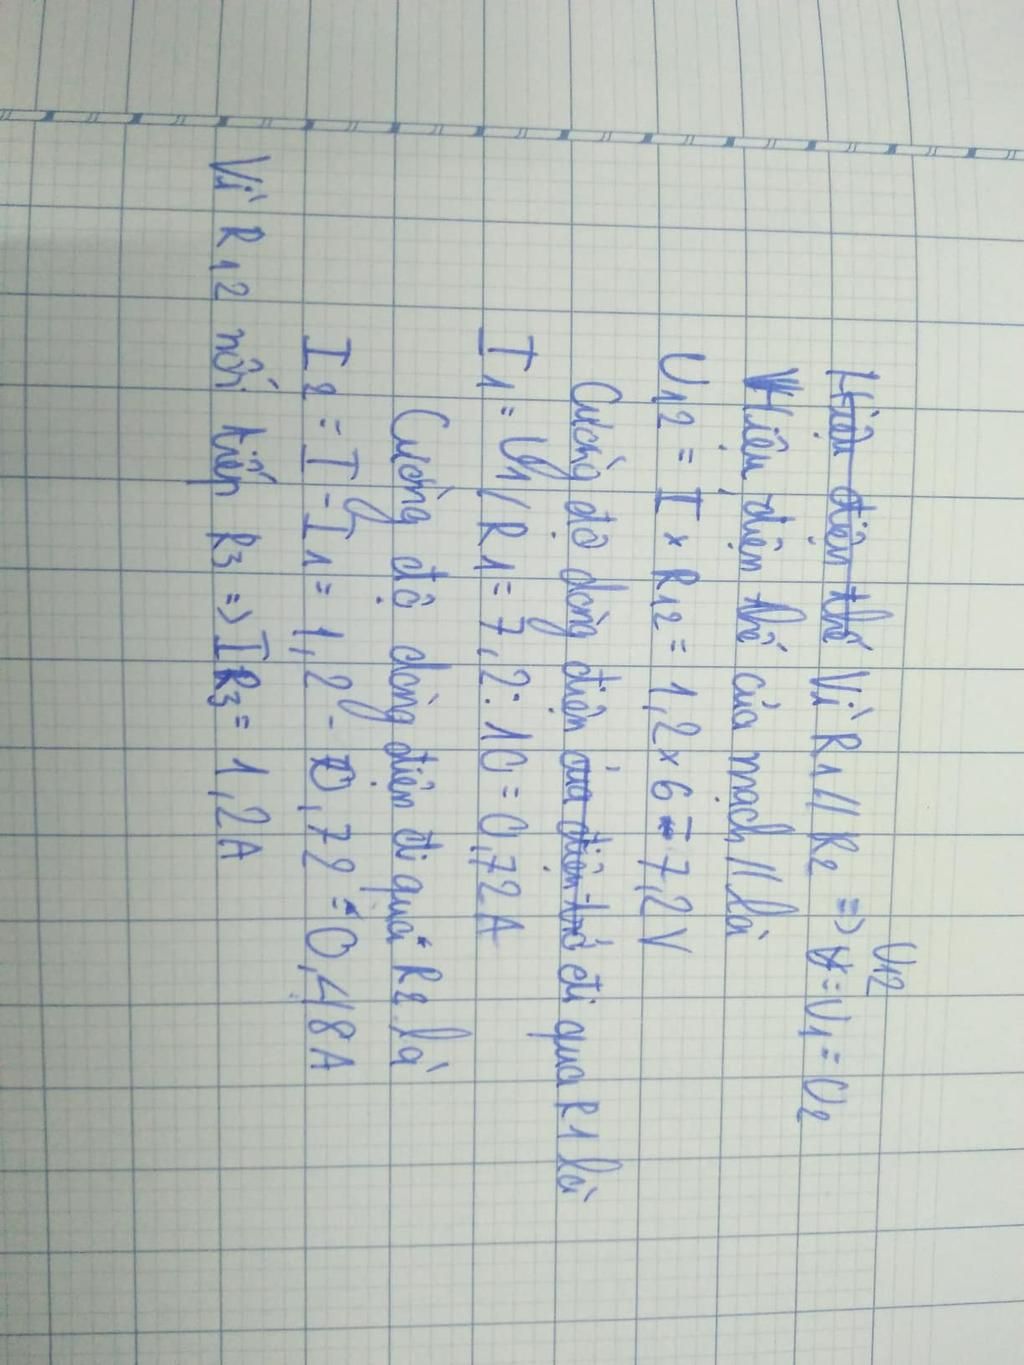 Hiệu điện thế Vì R1 // R2 => U12 = U1 = U2
Hiệu điện thế của mạch // là
U12 = I × R12 = 1,2 × 6 = 7,2 V
Cường độ dòng điện của điện trở đi qua R1 là
I1 = U1 / R1 = 7,2 : 10 = 0,72 A
Cường độ dòng điện đi qua R2 là
I2 = I - I1 = 1,2 - 0,72 = 0,48 A
Vì R12 nối tiếp R3 => IR3 = 1,2 A